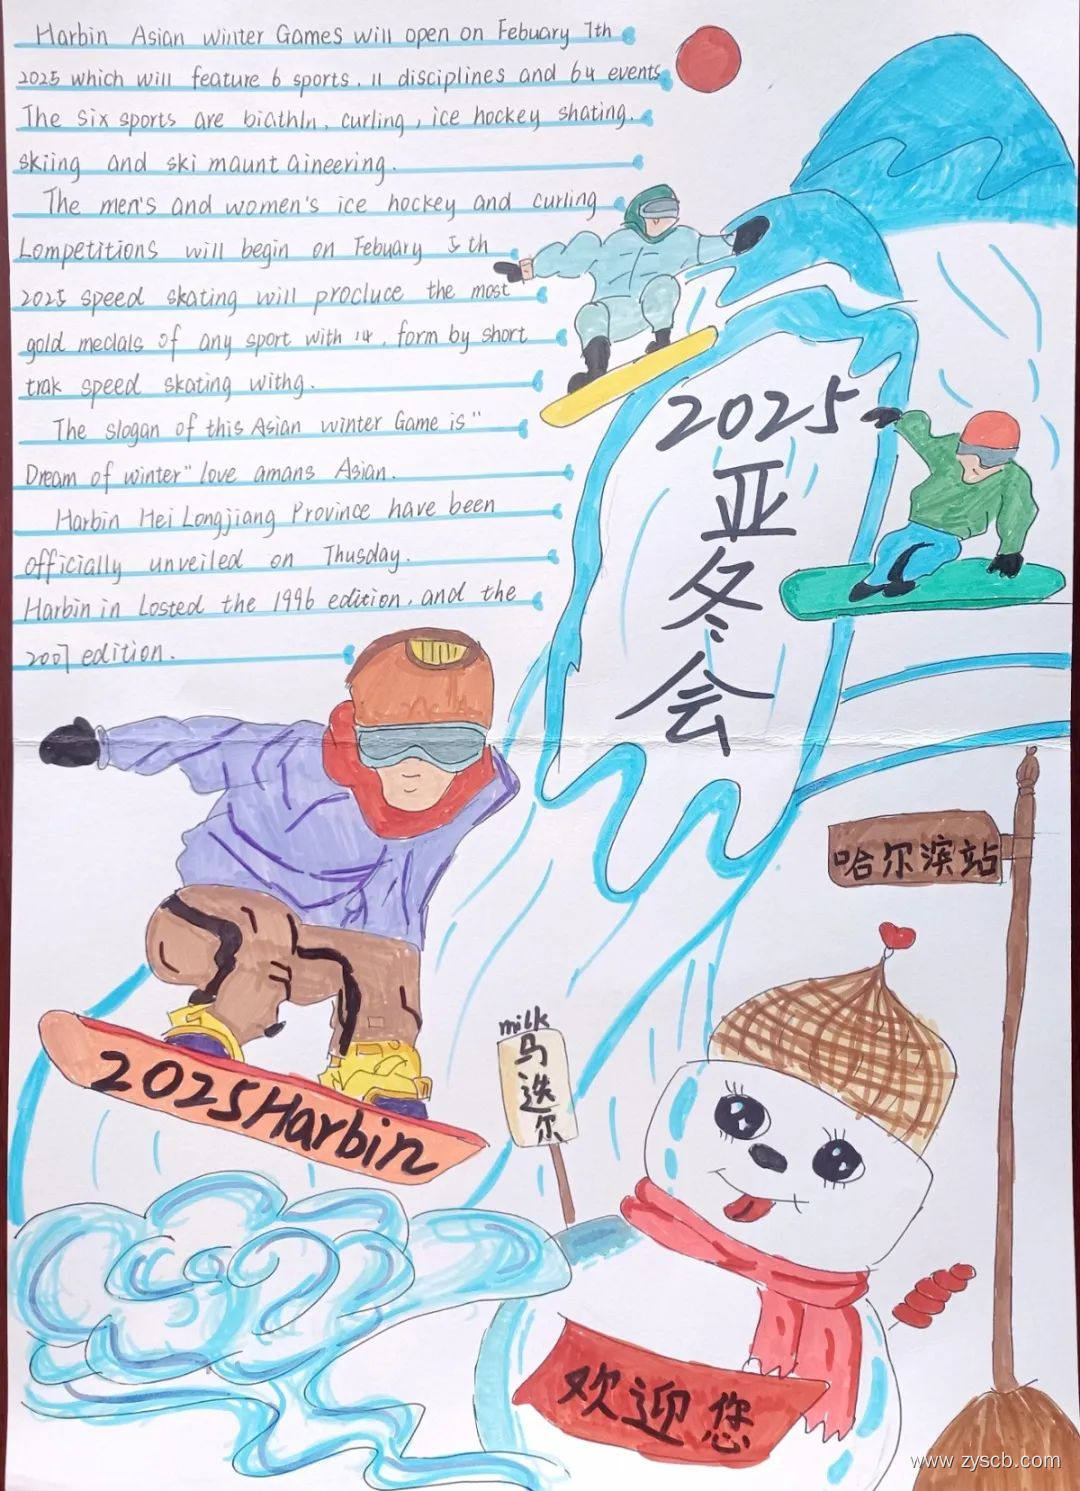 Harbin Asian winter Games will open on Febuary 7th
2025 which will feature 6 sports, 11 disciplines and 64 events
The six sports are biathln, curling, ice hockey shating.
skiing and ski maunt aineering.
The men's and women's ice hockey and curling
Lompetitions will begin on Febuary 5th
2025 speed skating will procluce the most
gold meclals of any sport with 14, form by short
trak speed skating withg.
The slogan of this Asian winter Game is "
Dream of winter" love amans Asian.
Harbin Hei Longjiang Province have been
officially unveiled on Thusday.
Harbin in Losted the 1996 edition, and the
2007 edition.
2025
亚
冬
会
哈尔滨站
milk
马
迭
尔
2025Harbin
欢迎您
www.zyscb.com